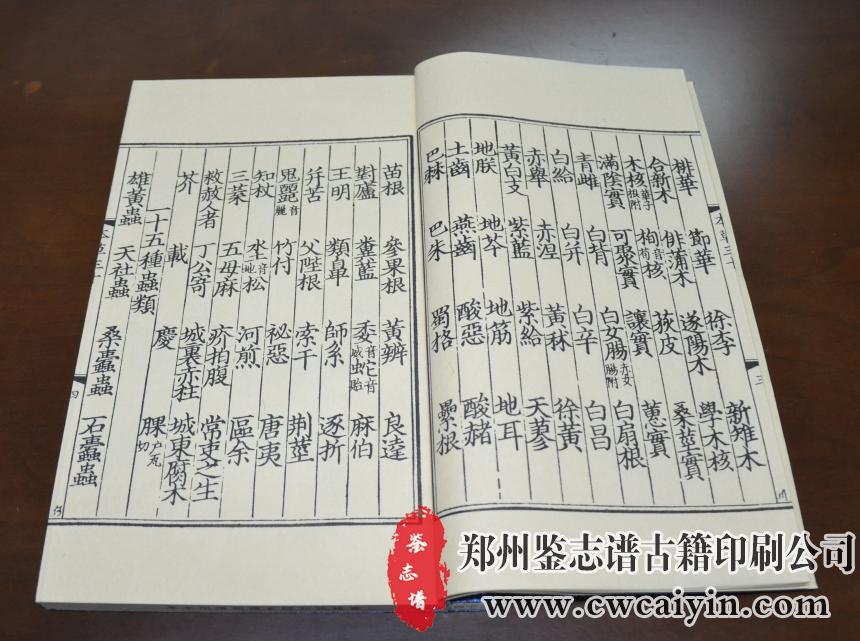 棑華 節華 徐李 新雉木
合新木 俳蒲木 遂陽木 學木核
木核華子根附 栒音荀核 荻皮 桑莖實
滿陰實 可聚實 讓實 蕙實
青雌 白背 白女腸赤女腸附 白扇根
白給 白并 白辛 白昌
赤舉 赤涅 黃秫 徐黃
黃白支 紫藍 紫給 天蓼
地朕 地芩 地筋 地耳
土齒 燕齒 酸惡 酸赭
巴棘 巴朱 蜀格 纍根
苗根 參果根 黃辨 良達
對廬 糞藍 委音威蛇音貽 麻伯
王明 類鼻 師系 逐折
并苦 父陛根 索干 荆莖
鬼䕻音麗 竹付 祕惡 唐夷
知杖 坔音地松 河煎 區余
三葉 五母麻 疥拍腹 常吏之生
救赦人者 丁公寄 城裏赤柱 城東腐木
芥 載 慶 腂户瓦切
一十五種蟲類
雄黃蟲 天社蟲 桑蠹蟲 石蠹蟲
鉴志谱
郑州鉴志谱古籍印刷公司
www.cwcaiyin.com